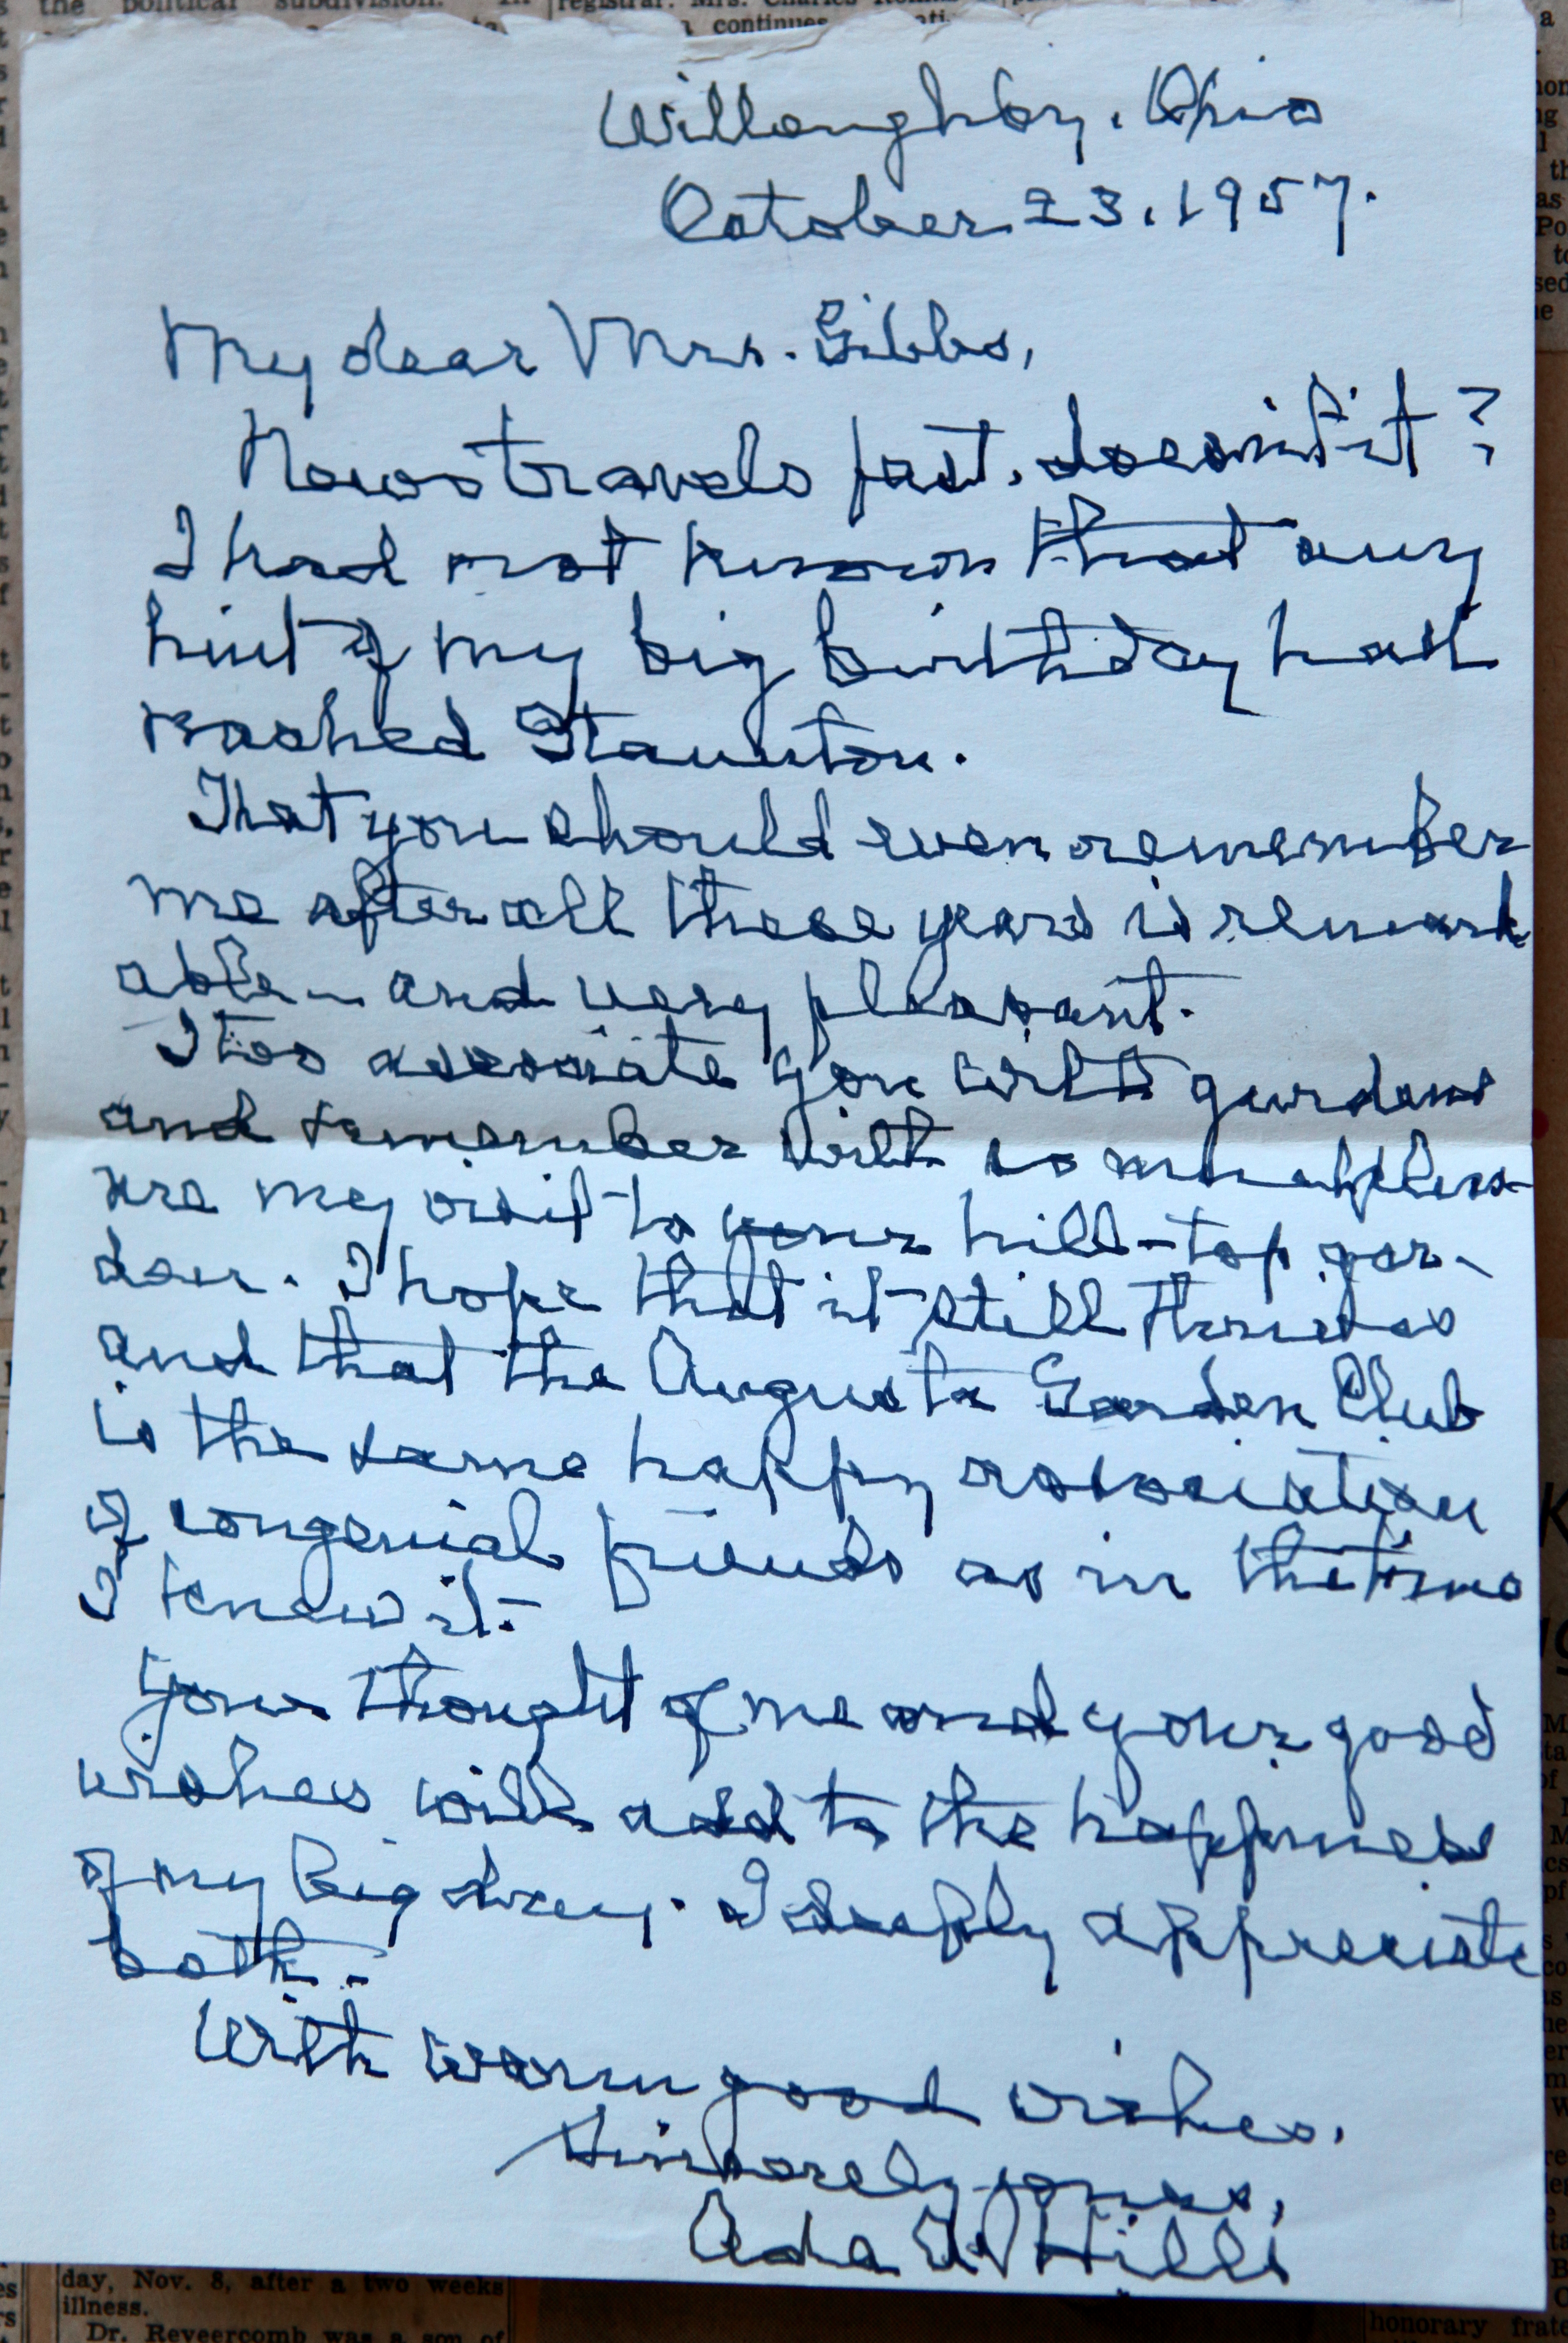 the political subdivision. In
registrar. Mrs. Charles
continues
Willoughby, Ohio
October 23, 1957.
My dear Mrs. Gibbs,
News travels fast, doesn't it?
I had not known that any
hint of my big birthday had
reached Staunton.
That you should even remember
me after all these years is remark
able - and very pleasant.
I too associate you with gardens
and remember with so much pleas-
ure my visit to your hill-top gar-
den. I hope that it still thrives
and that the Augusta Garden Club
is the same happy association
of congenial friends as in the time
I knew it.
Your thought of me and your good
wishes will add to the happiness
of my big day. I deeply appreciate
both.
With warm good wishes,
Sincerely yours,
Ada Hill
day, Nov. 8, after a two weeks
illness.
Dr. Reveercomb was a son of
honorary